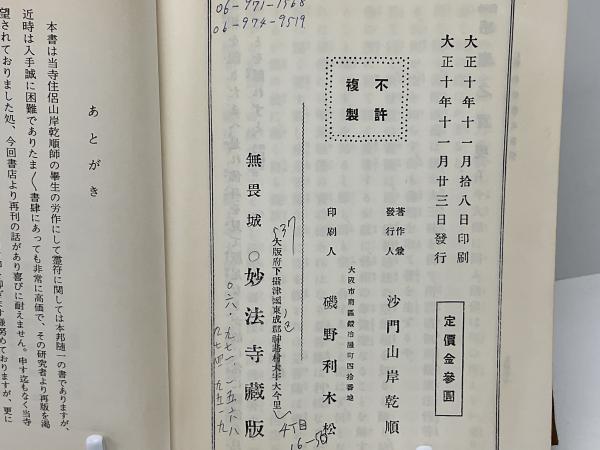 06-971-1568
06-974-9519
大正十年十一月拾八日印刷
大正十年十一月廿三日發行
定價金參圓
不許
複製
著作兼
發行人
沙門山岸乾順
大阪市南區鍛冶屋町四拾番地
印刷人
磯野利木松
537
大阪府下攝津國東成郡神路村大字大今里
4丁目
16-50
無畏城
○妙法寺藏版
〇六・九七一・一五六八
九七四・九五一九
あとがき
本書は当寺住侶山岸乾順師の畢生の労作にして霊符に関しては本邦随一の書でありますが、
近時は入手誠に困難でありたま〱書肆にあっても非常に高価で、その研究者より再版を渇
望されておりました処、今回書店より再刊の話があり喜びに耐えません。申す迄もなく当寺